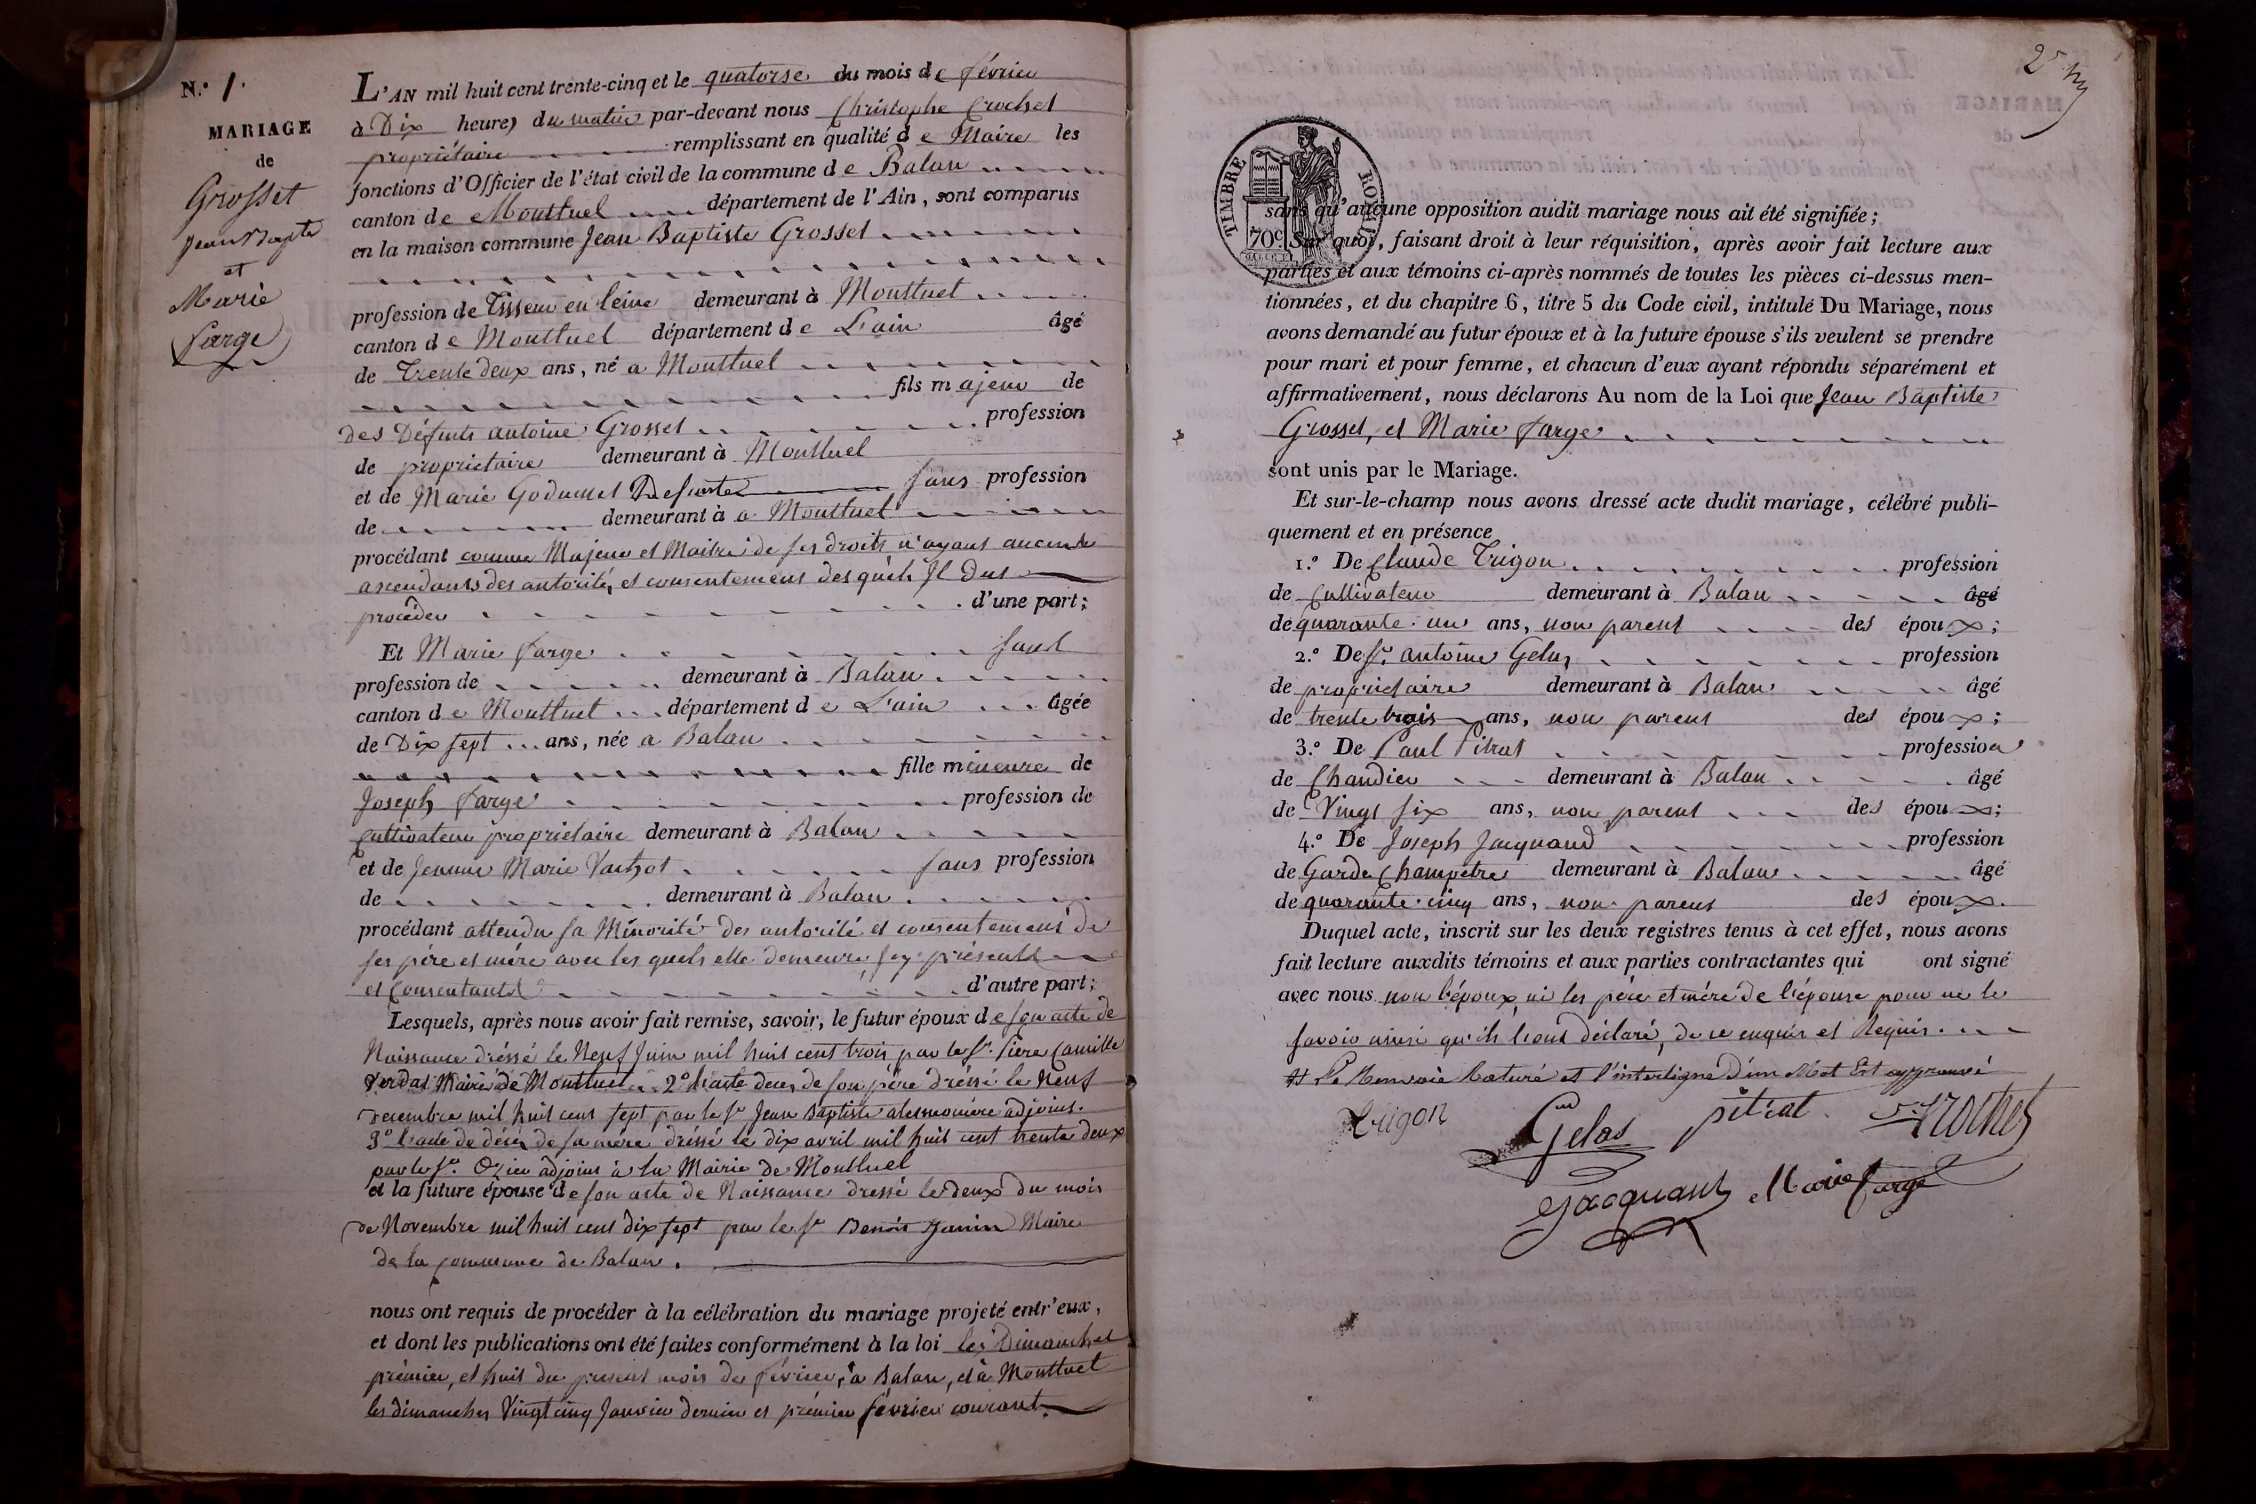 N.° 1.
MARIAGE
de
Grosset
Jean Bapte
et
Marie
Farge
L'AN mil huit cent trente-cinq et le quatorse du mois de février
à Dix heures du matin par-devant nous Christophe Crochet
propriétaire remplissant en qualité de Maire les
fonctions d'Officier de l'état civil de la commune de Balan
canton de Montluel département de l'Ain, sont comparus
en la maison commune Jean Baptiste Grosset
profession de Tisseur en laine demeurant à Montluel
canton de Montluel département de L'ain âgé
de Trente deux ans, né a Montluel
fils majeur de
des Défunts antoine Grosset profession
de propriétaire demeurant à Montluel
et de Marie Defunte sans profession
de demeurant à a Montluel
procédant comme Majeur et Maitre de ses droits n'ayant aucuns
ascendants des autorités et consentement desquels Il dut
procéder d'une part;
Et Marie Farge sans
profession de demeurant à Balan
canton de Montluel département de L'ain âgée
de Dix sept ans, née a Balan
fille mineure de
Joseph Farge profession de
Cultivateur propriétaire demeurant à Balan
et de Jeanne Marie sans profession
de demeurant à Balan
procédant attendu sa Minorité des autorité et consentement de
ses père et mère avec les quels elle demeure, icy présents
et Consentants d'autre part;
Lesquels, après nous avoir fait remise, savoir, le futur époux de son acte de
Naissance dréssé le Neuf Juin mil huit cent trois par le Sr. Piere Camille
Verdat Maire de Montluel 2° l'acte de de son père dréssé le Neuf
decembre mil huit cent sept par le Sr Jean Baptiste adjoint.
3° l'acte de décès de sa mère dréssé le dix avril mil huit cent trente deux
par le Sr. Ozier adjoint à la Mairie de Montluel
et la future épouse de son acte de Naissance dressé le deux du mois
de Novembre mil huit cent dix sept par le Sr Benoit Janin Maire
de la Commune de Balan.
nous ont requis de procéder à la célébration du mariage projeté entr'eux,
et dont les publications ont été faites conformément à la loi les Dimanches
prémier, et huit du présent mois de février, à Balan, et à Montluel
les dimanches Vingt cinq Janvier dernier et prémier février courant.
TIMBRE ROYAL
70c.
sans qu'aucune opposition audit mariage nous ait été signifiée;
Sur quoi, faisant droit à leur réquisition, après avoir fait lecture aux
parties et aux témoins ci-après nommés de toutes les pièces ci-dessus men-
tionnées, et du chapitre 6, titre 5 du Code civil, intitulé Du Mariage, nous
avons demandé au futur époux et à la future épouse s'ils veulent se prendre
pour mari et pour femme, et chacun d'eux ayant répondu séparément et
affirmativement, nous déclarons Au nom de la Loi que Jean Baptiste
Grosset, et Marie Farge
sont unis par le Mariage.
Et sur-le-champ nous avons dressé acte dudit mariage, célébré publi-
quement et en présence
1.° De Claude Trigon profession
de Cultivateur demeurant à Balan âgé
de quarante un ans, non parent des époux;
2.° De Sr. antoine Gelas profession
de propriétaire demeurant à Balan âgé
de trente trois ans, non parent des époux;
3.° De Paul Pitrat profession
de Chandier demeurant à Balan âgé
de Vingt six ans, non parent des époux;
4.° De Joseph Jacquand profession
de Garde Champetre demeurant à Balan âgé
de quarante cinq ans, non parent des époux.
Duquel acte, inscrit sur les deux registres tenus à cet effet, nous avons
fait lecture auxdits témoins et aux parties contractantes qui ont signé
avec nous non l'époux, ni les père et mère de l'épouse pour ne le
savoir ainsi qu'ils l'ont déclaré, de ce enquis et Requis.
Le Renvoie et l'interligne d'un Mot Est approuvé
Trigon
Gelas
pitrat
Crochet
Jacquant
Marie Farge